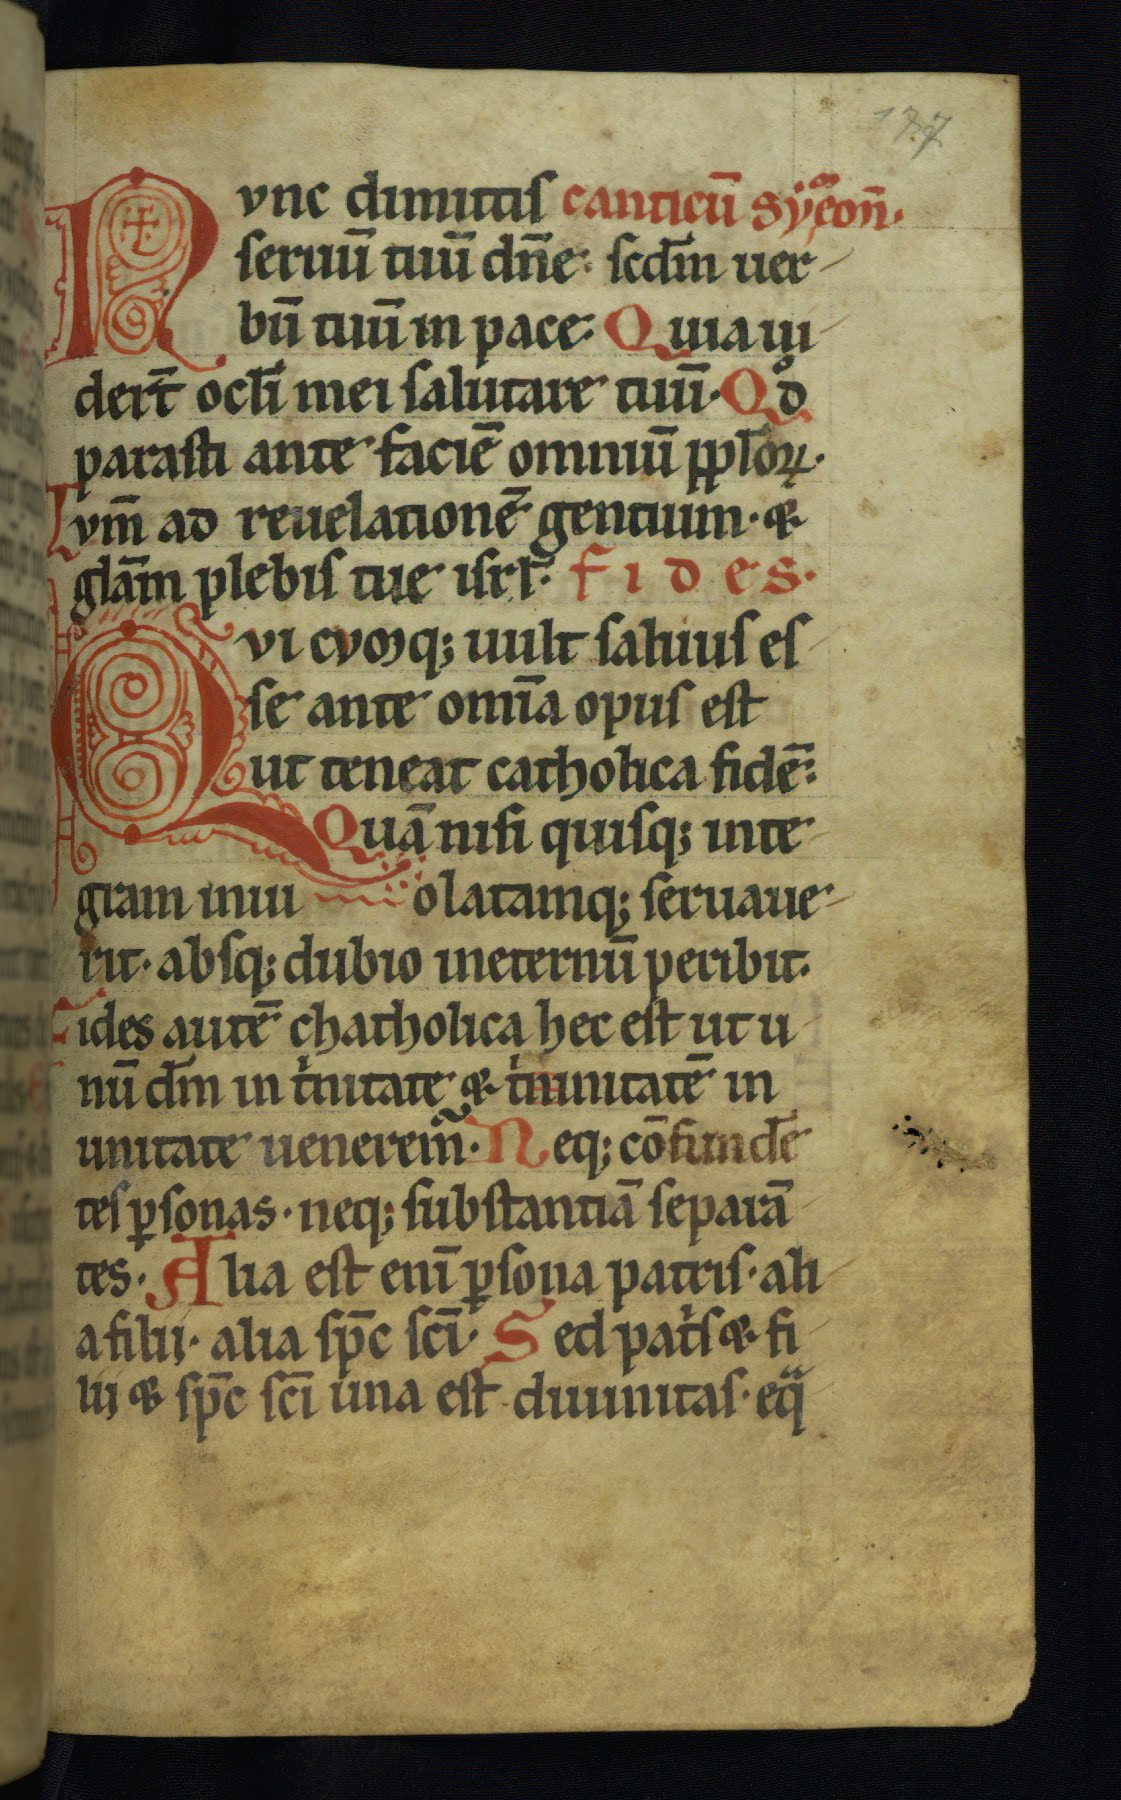 177
Nvnc dimittis canticū Sẏᵃeon̄.
seruū tuū dn̄e: scd̄m uer
bū tuū in pace: Quia ui
der̄t ocl̄i mei salutare tuū. Qᵒd
parasti ante faciē omniū pp̄l̄oꝝ.
Lvm̄ ad reuelationē gentium. &
gl̄am plebis tue isrl̄. Fides.
Qvi cvmq; uult saluus es
se ante omīa opus est
ut teneat catholica fidē:
Quā nisi quisq; inte
gram inui olatamq; seruaue
rit. absq; dubio ineternū peribit.
Fides autē chatholica hec est ut u
nū dm̄ in tⁱnitate & tⁱninitatē in
unitate uenerem̃. Neq; cōfunde
tes ꝑsonas. neq; substantiā separā
tes. Alia est enī ꝑsona patris. ali
a filii. alia sp̄c sc̄i. Sed patⁱs & fi
lii & sp̄c sc̄i una est diuinitas. eqᵃ